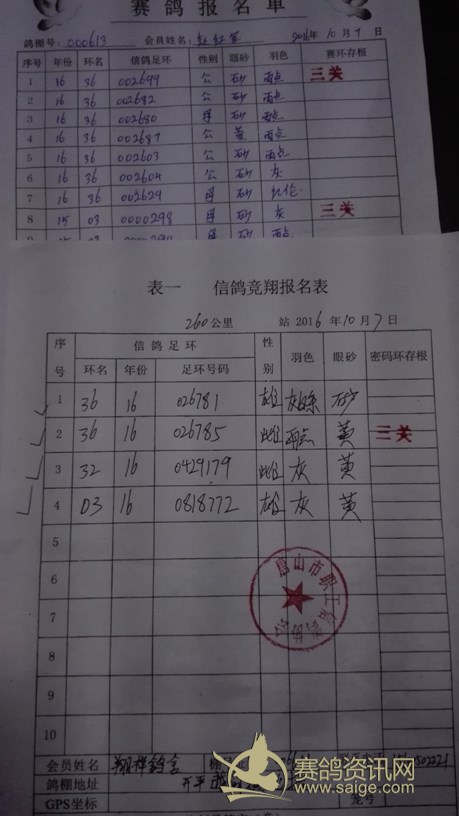 赛鸽报名单
鸽棚号: 000613 会员姓名: 赵红军 2016年10月7日
序号 年份 环名 信鸽足环 性别 眼砂 羽色 赛环存根
1 16 36 002699 公 砂 雨点 三关
2 16 36 002682 公 砂 雨点
3 16 36 002680 母 砂 雨点
4 16 36 002687 公 黄 雨点
5 16 36 002603 公 砂 雨点
6 16 36 002604 公 砂 灰
7 16 36 002629 母 砂
8 15 03 0000298 母 砂 灰 三关
表一 信鸽竞翔报名表
260公里 站 2016年10月7日
序号 信鸽足环 性别 羽色 眼砂 密码环存根
环名 年份 足环号码
1 36 16 026781 雄 砂
2 36 16 026785 雌 雨点 黄 三关
3 32 16 0429179 雌 灰 黄
4 03 16 0818772 雄 灰 黄
5
6
7
8
9
10
唐山市职工
会员姓名 翔祥鸽舍
鸽棚地址 开平
GPS坐标
赛鸽资讯网
www.saige.com